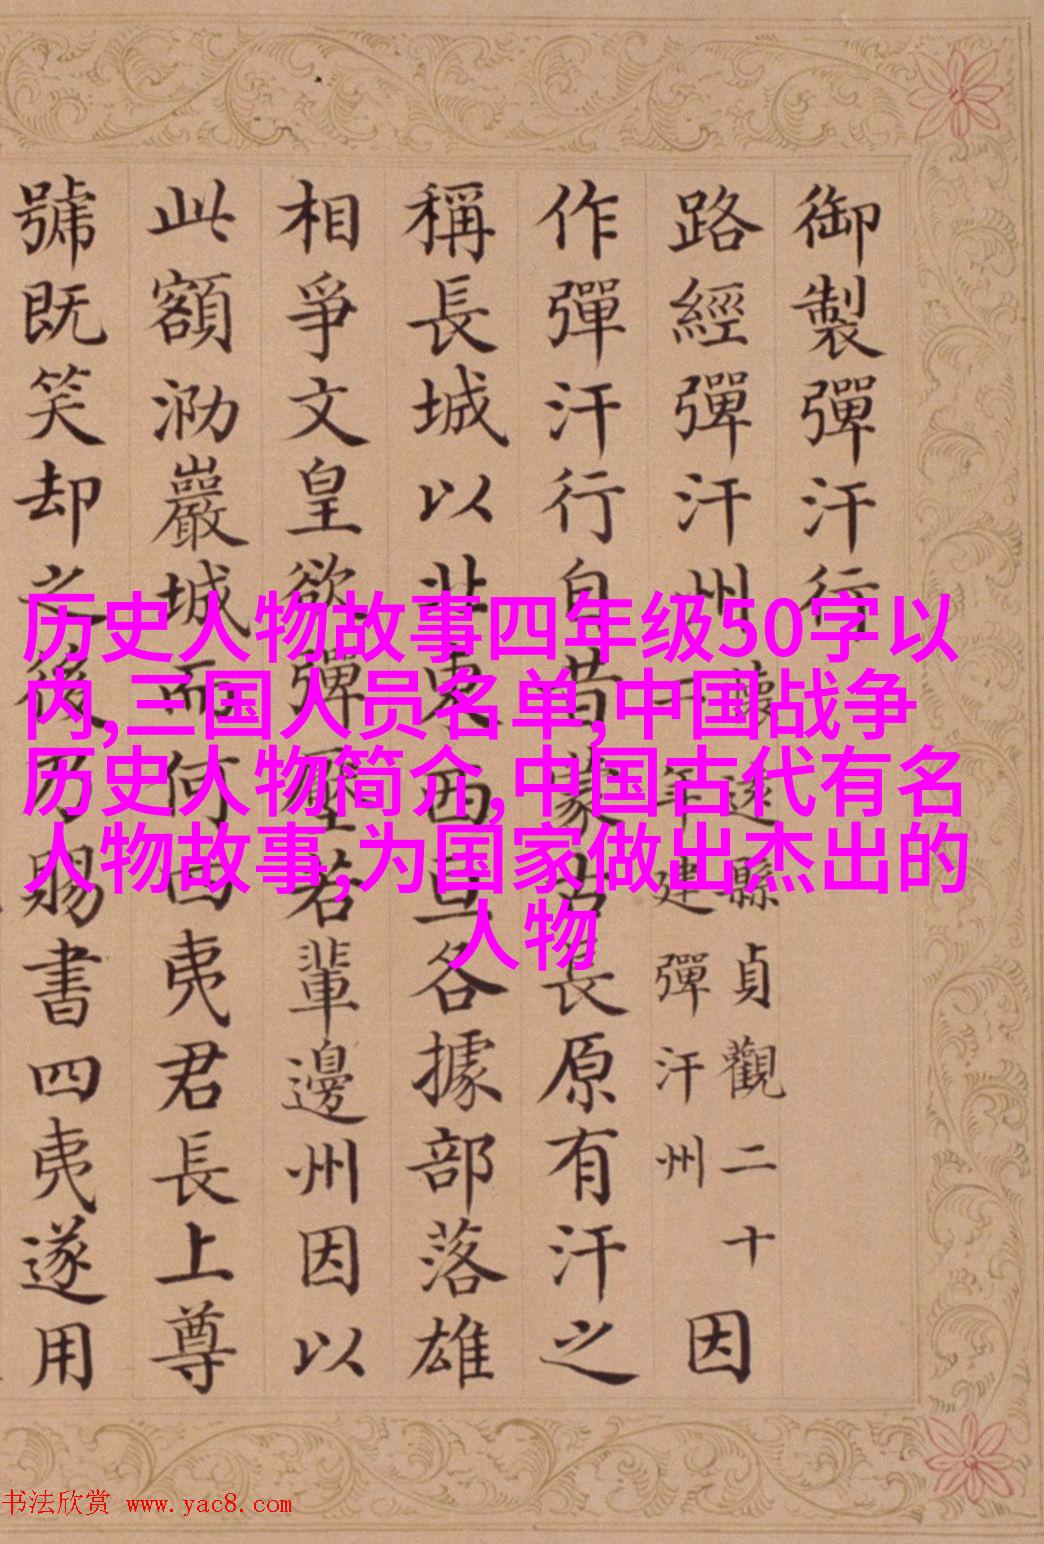 御製彈汗行
路經彈汗州
懷遠縣貞觀二十
一年建彈汗州
因
作彈汗行自昔蒙長原有汗之
稱長城以北東西亘各據部落雄
相爭文皇欲彈壓若輩邊州因以
此額泐巖城而何曰夷君長上尊
號既笑却之後乃賜書四夷遂用
历史人物故事四年级50字以
内,三国人员名单,中国战争
历史人物简介,中国古代有名
人物故事,为国家做出杰出的
人物
书法欣赏 www.yac8.com